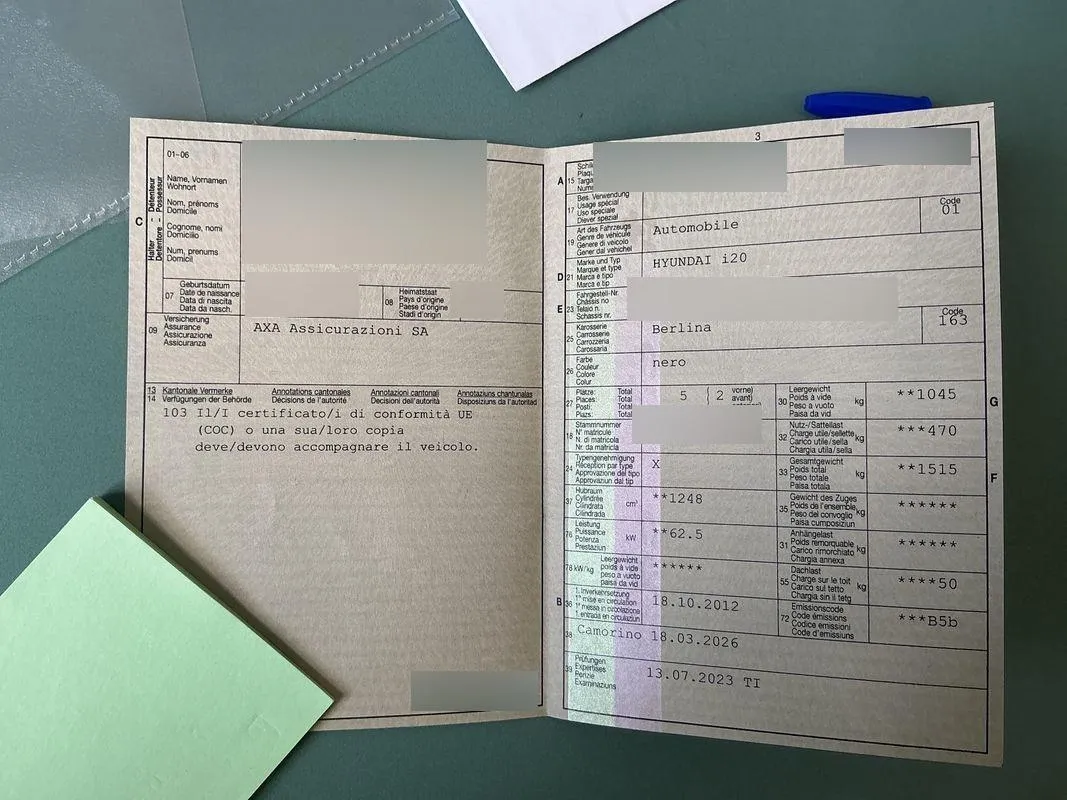 01-06
Halter - Détenteur
Detentore - Possessur
C
Name, Vornamen
Wohnort
Nom, prénoms
Domicile
Cognome, nomi
Domicilio
Num, prenums
Domicil
07
Geburtsdatum
Date de naissance
Data di nascita
Data da nasch.
08
Heimatstaat
Pays d'origine
Paese d'origine
Stadi d'origin
09
Versicherung
Assurance
Assicurazione
Assicuranza
AXA Assicurazioni SA
13 Kantonale Vermerke Annotations cantonales Annotazioni cantonali Annotaziuns chantunalas
14 Verfügungen der Behörde Décisions de l'autorité Decisioni dell'autorità Disposiziuns da l'autoritad
103 Il/I certificato/i di conformità UE
(COC) o una sua/loro copia
deve/devono accompagnare il veicolo.
3
A 15
Targa
17
Bes. Verwendung
Usage spécial
Uso speciale
Diever spezial
19
Art des Fahrzeugs
Genre de véhicule
Genere di veicolo
Gener dal vehichel
Automobile
Code
01
D 21
Marke und Typ
Marque et type
Marca e tipo
Marca e tip
HYUNDAI i20
E 23
Fahrgestell-Nr.
Châssis no
Telaio n.
Schassis nr.
25
Karosserie
Carrosserie
Carrozzeria
Carossaria
Berlina
Code
163
26
Farbe
Couleur
Colore
Colur
nero
27
Plätze: Total
Places: Total
Posti: Total
Plazs: Total
5 ( 2 vorne)
avant)
30
Leergewicht
Poids à vide
Peso a vuoto
Paisa da vid
kg
**1045
G
18
Stammnummer
N° matricule
N. di matricola
Nr. da matricla
32
Nutz-/Sattellast
Charge utile/sellette
Carico utile/sella
Chargia utila/sella
kg
***470
24
Typengenehmigung
Réception par type
Approvazione del tipo
Approvaziun dal tip
X
33
Gesamtgewicht
Poids total
Peso totale
Paisa totala
kg
**1515
F
37
Hubraum
Cylindrée
Cilindrata
Cilindrada
cm³
**1248
35
Gewicht des Zuges
Poids de l'ensemble
Peso del convoglio
Paisa cumposiziun
kg
******
76
Leistung
Puissance
Potenza
Prestaziun
kW
**62.5
31
Anhängelast
Poids remorquable
Carico rimorchiato
Chargia annexa
kg
******
78 kW/kg
Leergewicht
poids à vide
peso a vuoto
paisa da vid
******
55
Dachlast
Charge sur le toit
Carico sul tetto
Chargia sin il tetg
kg
****50
B 36
1. Inverkehrsetzung
1re mise en circulation
1a messa in circolazione
1. entrada en circulaziun
18.10.2012
72
Emissionscode
Code émissions
Codice emissioni
Code d'emissiuns
***B5b
38
Camorino 18.03.2026
39
Prüfungen
Expertises
Perizie
Examinaziuns
13.07.2023 TI